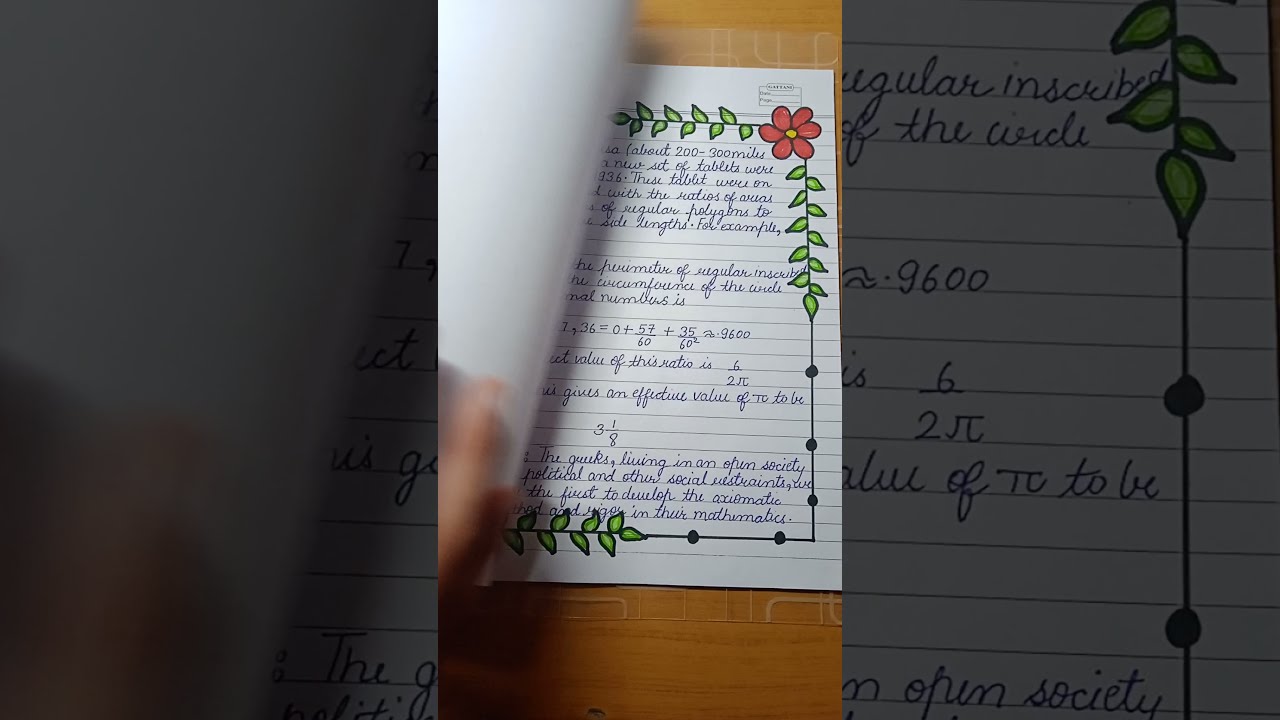 GATTANI
Date
Page
sa (about 200-300miles
a new set of tablets were
936. These tablet were on
d with the ratios of areas
s of regular polygons to
side lengths. For example,
the perimeter of regular inscribed
the circumfounce of the circle
mal numbers is
7,36 = 0 + 57/60 + 35/60² ≈ .9600
ect value of this ratio is 6/2π
is gives an effective value of π to be
3 1/8
: The greeks, living in an open society
political and other social restraints, we
the first to develop the axiomatic
hod and rigor in their mathematics.